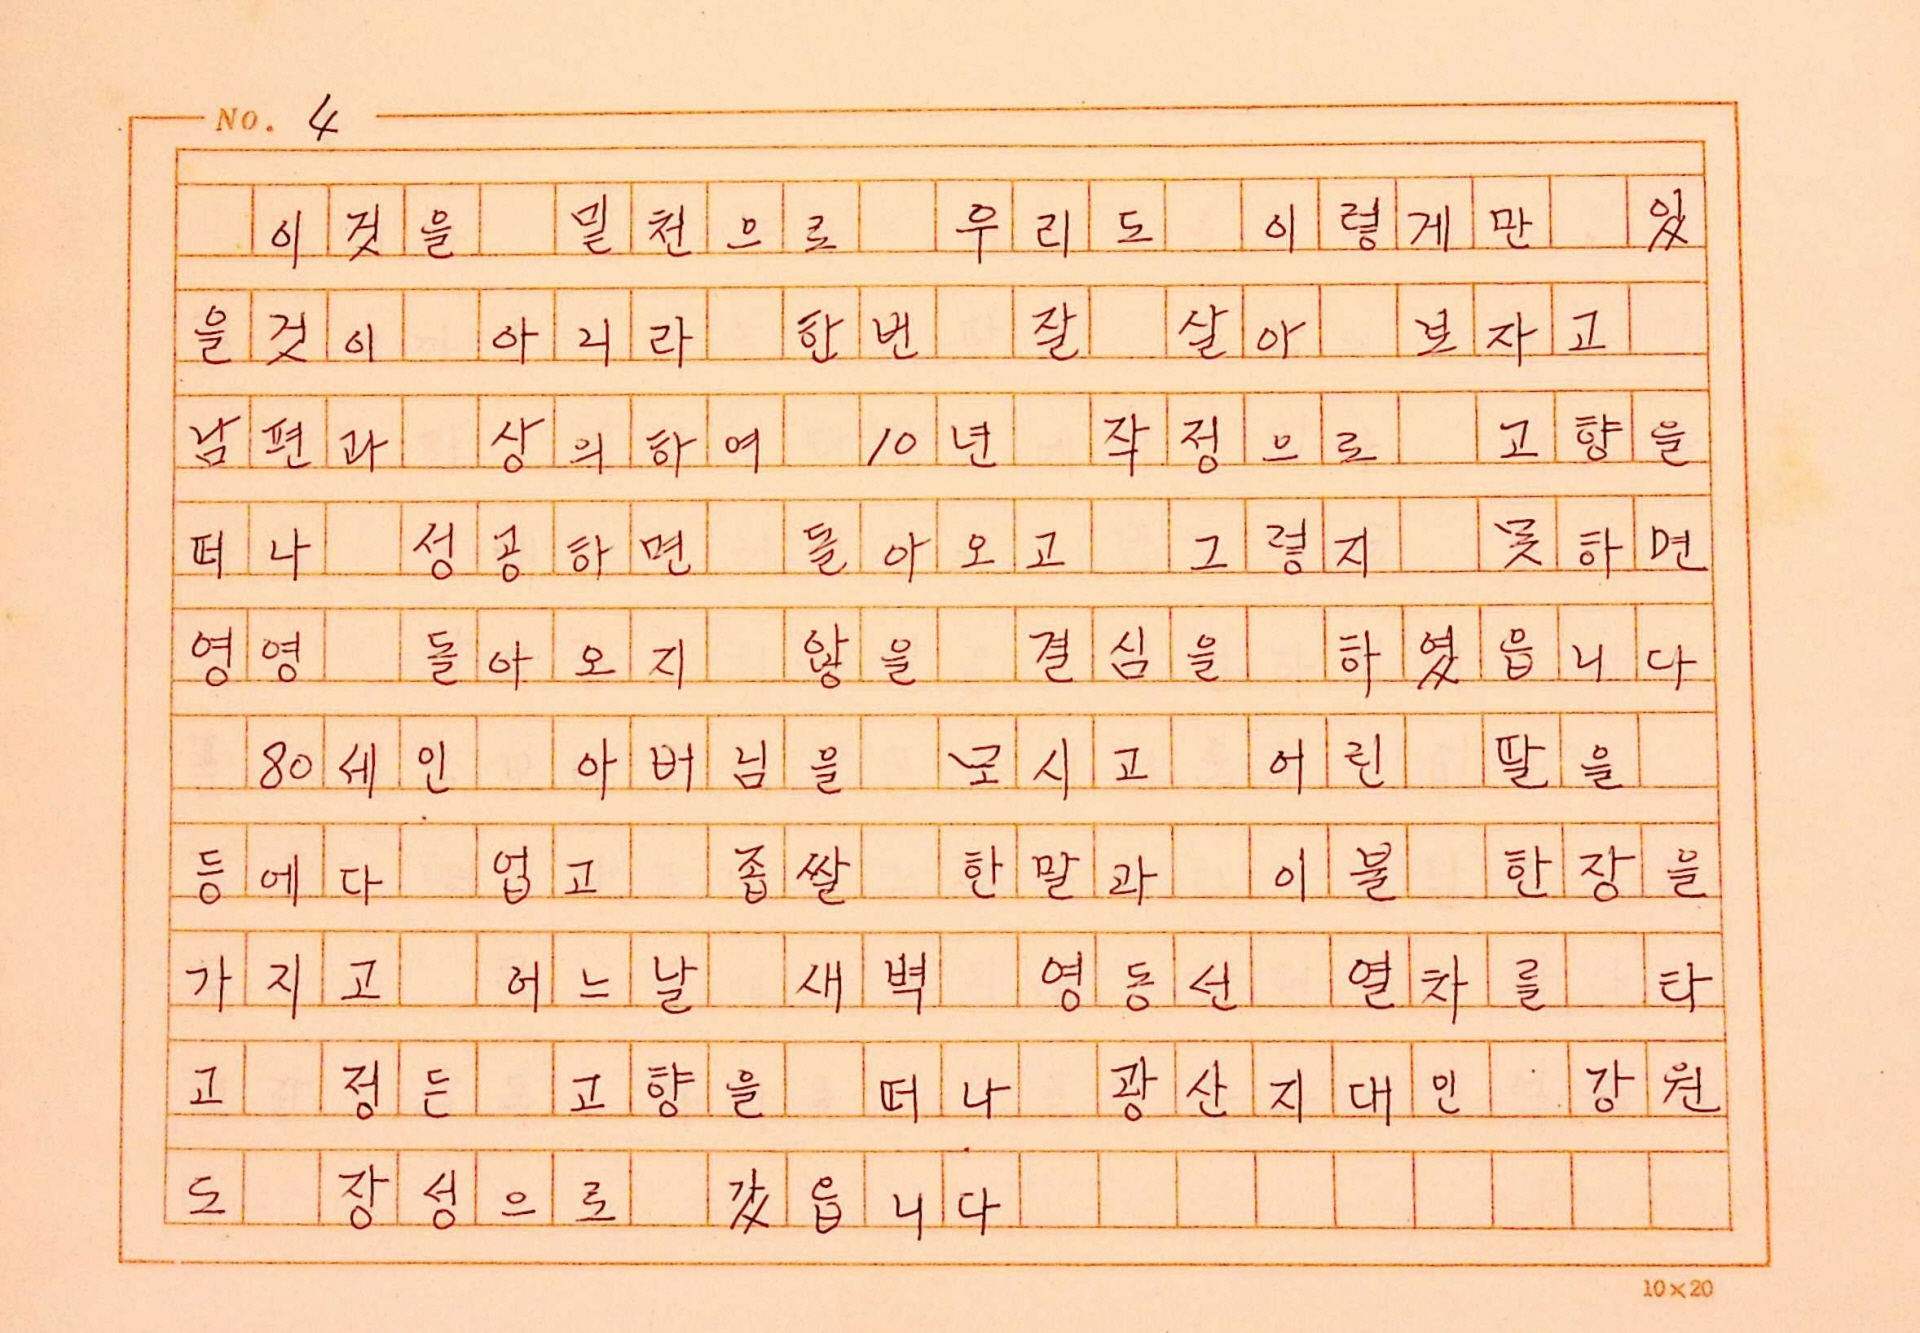 No. 4
이것을 밑천으로 우리도 이렇게만 있
을것이 아니라 한번 잘 살아 보자고
남편과 상의하여 10년 작정으로 고향을
떠나 성공하면 돌아오고 그렇지 못하면
영영 돌아오지 않을 결심을 하였읍니다
80세인 아버님을 모시고 어린 딸을
등에다 업고 좁쌀 한말과 이불 한장을
가지고 어느날 새벽 영동선 열차를 타
고 정든 고향을 떠나 광산지대인 강원
도 장성으로 갔읍니다
10×20